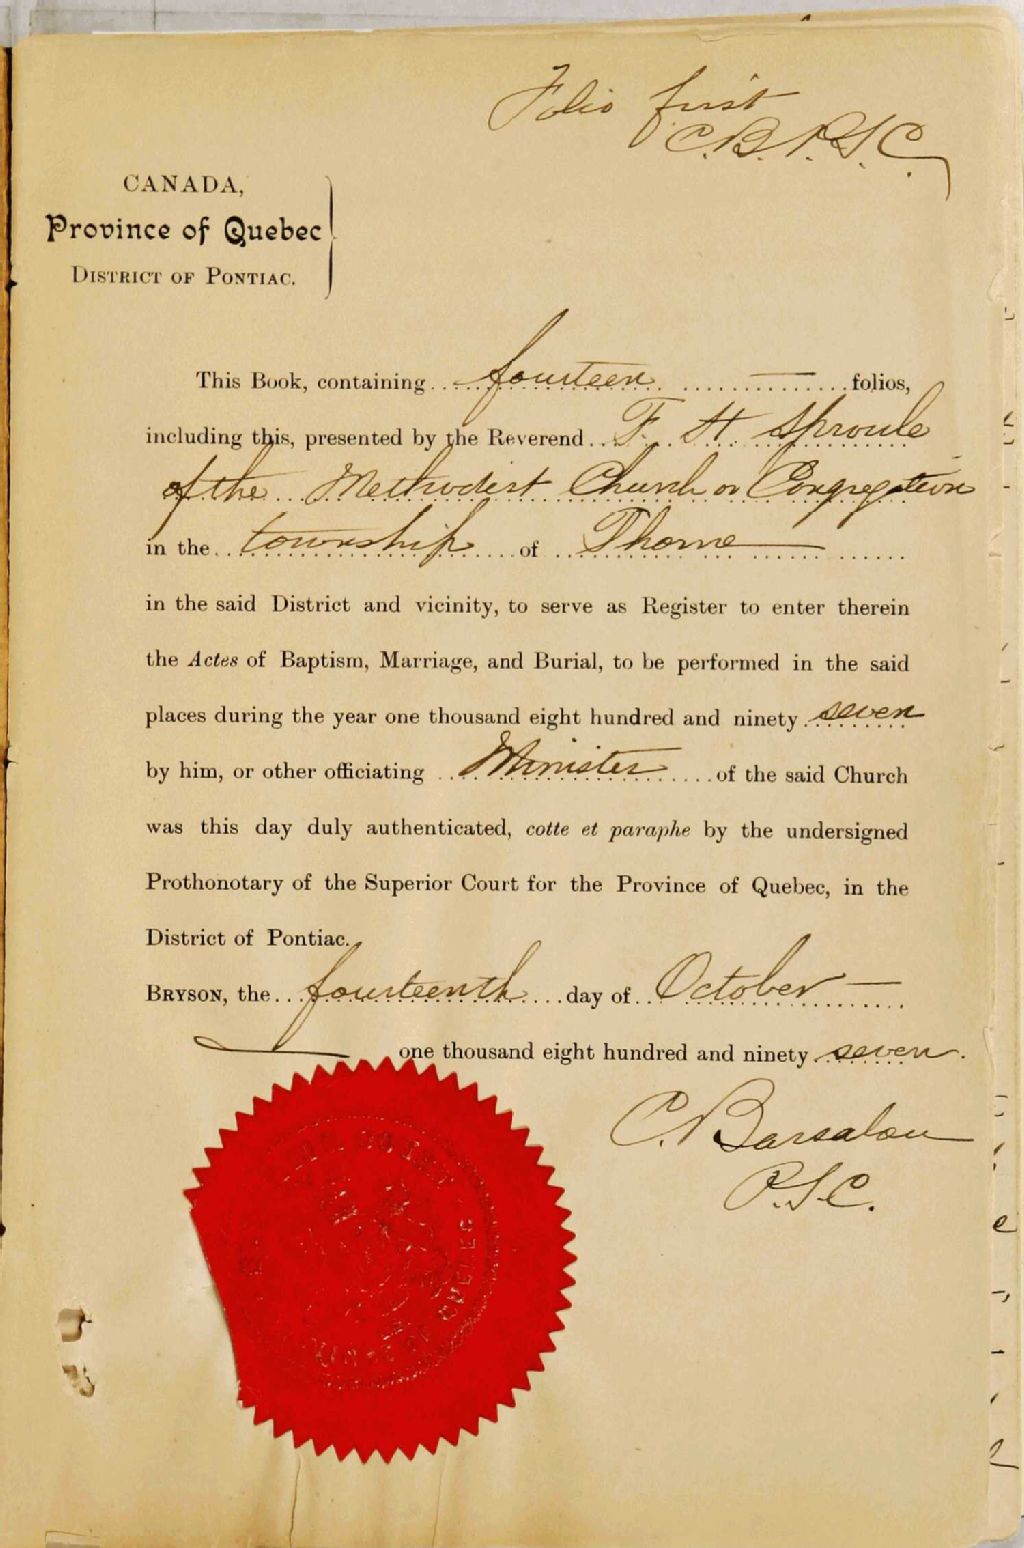 Folio first
C.B.P.S.C.
CANADA,
Province of Quebec
DISTRICT OF PONTIAC.
This Book, containing fourteen folios,
including this, presented by the Reverend F. H. Sproule
of the Methodist Church or Congregation
in the township of Thorne
in the said District and vicinity, to serve as Register to enter therein
the Actes of Baptism, Marriage, and Burial, to be performed in the said
places during the year one thousand eight hundred and ninety seven
by him, or other officiating Minister of the said Church
was this day duly authenticated, cotte et paraphe by the undersigned
Prothonotary of the Superior Court for the Province of Quebec, in the
District of Pontiac.
BRYSON, the fourteenth day of October
one thousand eight hundred and ninety seven.
C. Barsalou
P.S.C.